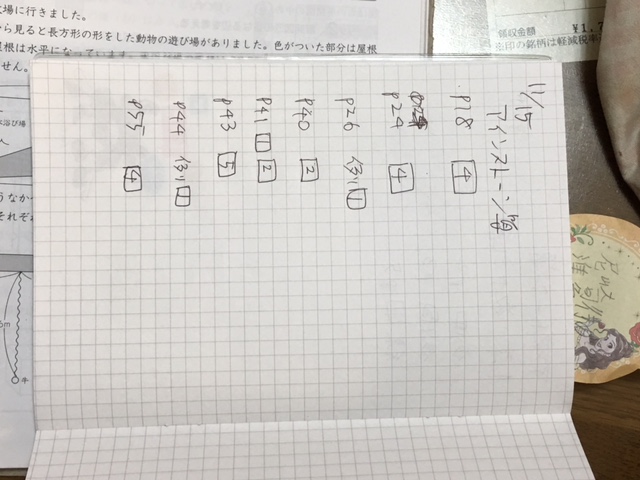 11/15
アインストーン算
P18 4
P24 4
P26 例1
P40 2
P41 1 2
P43 5
P44 例1
P55 4
場に行きました。
ら見ると長方形の形をした動物の遊び場がありました。色がついた部分は屋根
屋根は水平になっています。
せん。
水浴び場
人
うなか
それぞれ
m
領収金額 ¥1,7
※印の銘柄は軽減税率